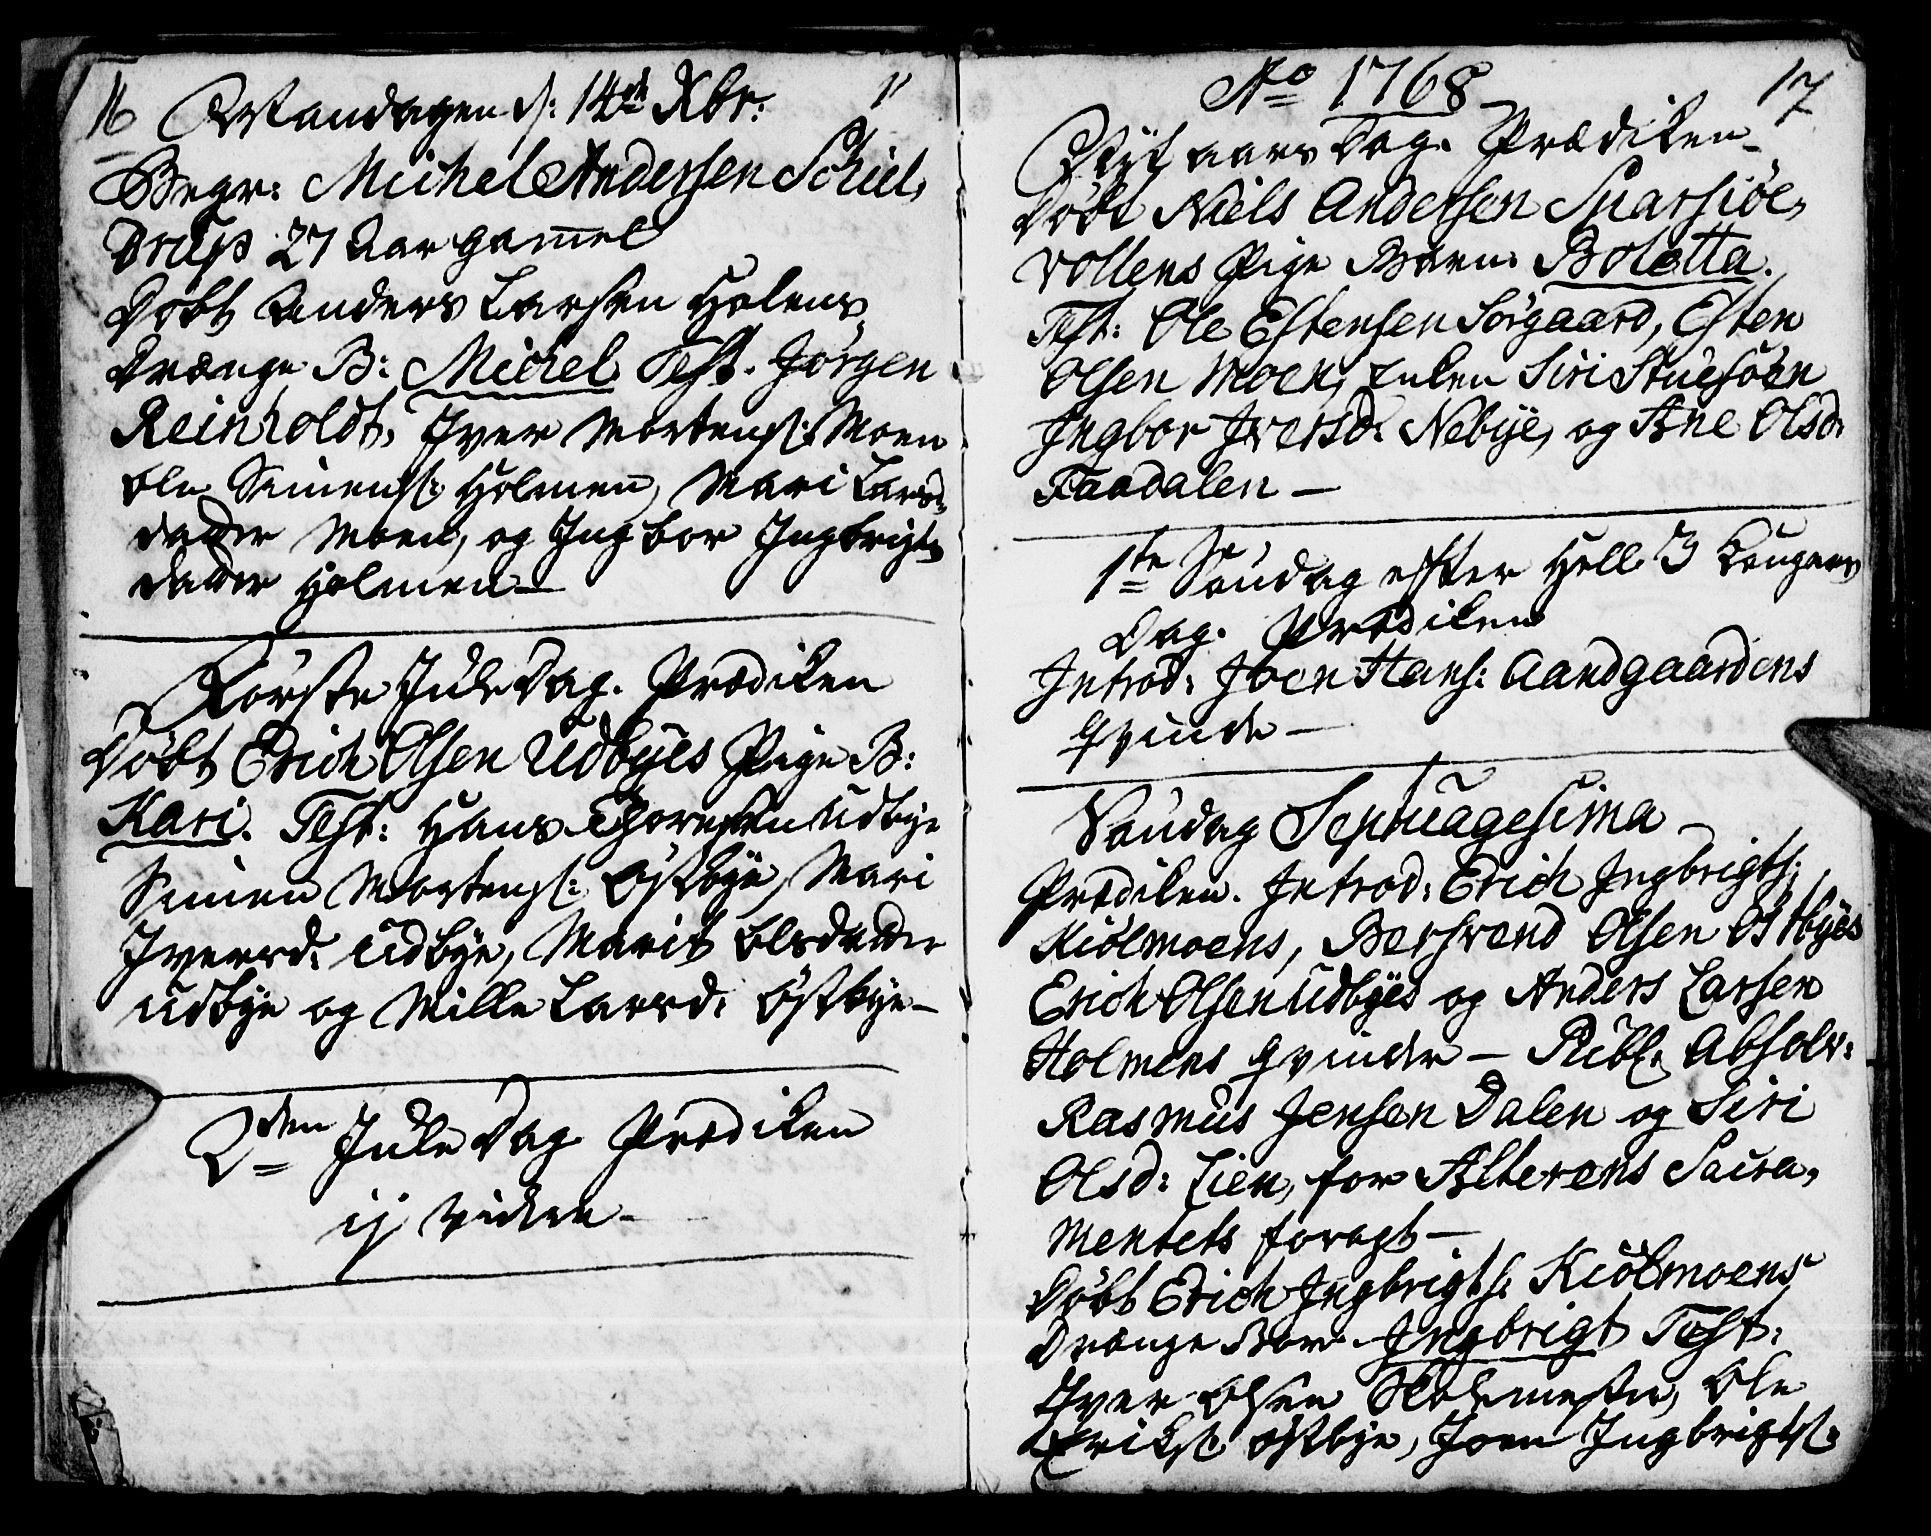 16
Mandagen d: 14de Xbr:
Begr: Michel Andersen Schiel,
Drup 27 Aar gammel
Döbt Anders Larsen Holens
Drænge B: Michel Test. Jörgen
Reinholdt, Iver Mortens: Moen
Ole Simens: Holmen, Mari Lars
datter Moen, og Ingbor Ingbrigts
datter Holmen —
Förste Jule Dag. Prædiken
Döbt Erich Olsen Udbyes Pige B:
Kari. Test: Hans Thoresen Udbye
Simen Mortens: Östbye, Mari
Iversd: Udbye, Marit Olsdatter
Udbye og Mille Larsd: Östbye —
2den Jule Dag Prædiken
ij videre —
Ao 1768
17
Nyt aars Dag. Prædiken
Döbt Niels Andersen Snarsiöe,
vollens Pige Barn: Boletta.
Test: Ole Estensen Sörgaard, Esten
Olsen Moen, Enken Siri Stuesöen
Ingbor Iversd: Nebÿe, og Ane Olsd:
Faadalen —
1te Söndag efter Hell 3 Kongers
Dag. Prædiken
Introd: Joen Hans: Aandgaardens
Qvinde —
Söndag Septuagesima —
Prædiken. Introd: Erich Ingbrigts:
Kiölmoens, Bersvend Olsen Östbÿes
Erich Olsen Udbÿes og Anders Larsen
Holmens Qvinder — Publ: Absolv:
Rasmus Jensen Dalen og Siri
Olsd: Lien, for Alterens Sacra,
mentets foragt —
Döbt Erich Ingbrigts: Kiölmoens
Drænge Barn Ingbrigt Test:
Iver Olsen, Ole
Eriks: Östbye, Joen Ingbrigts: